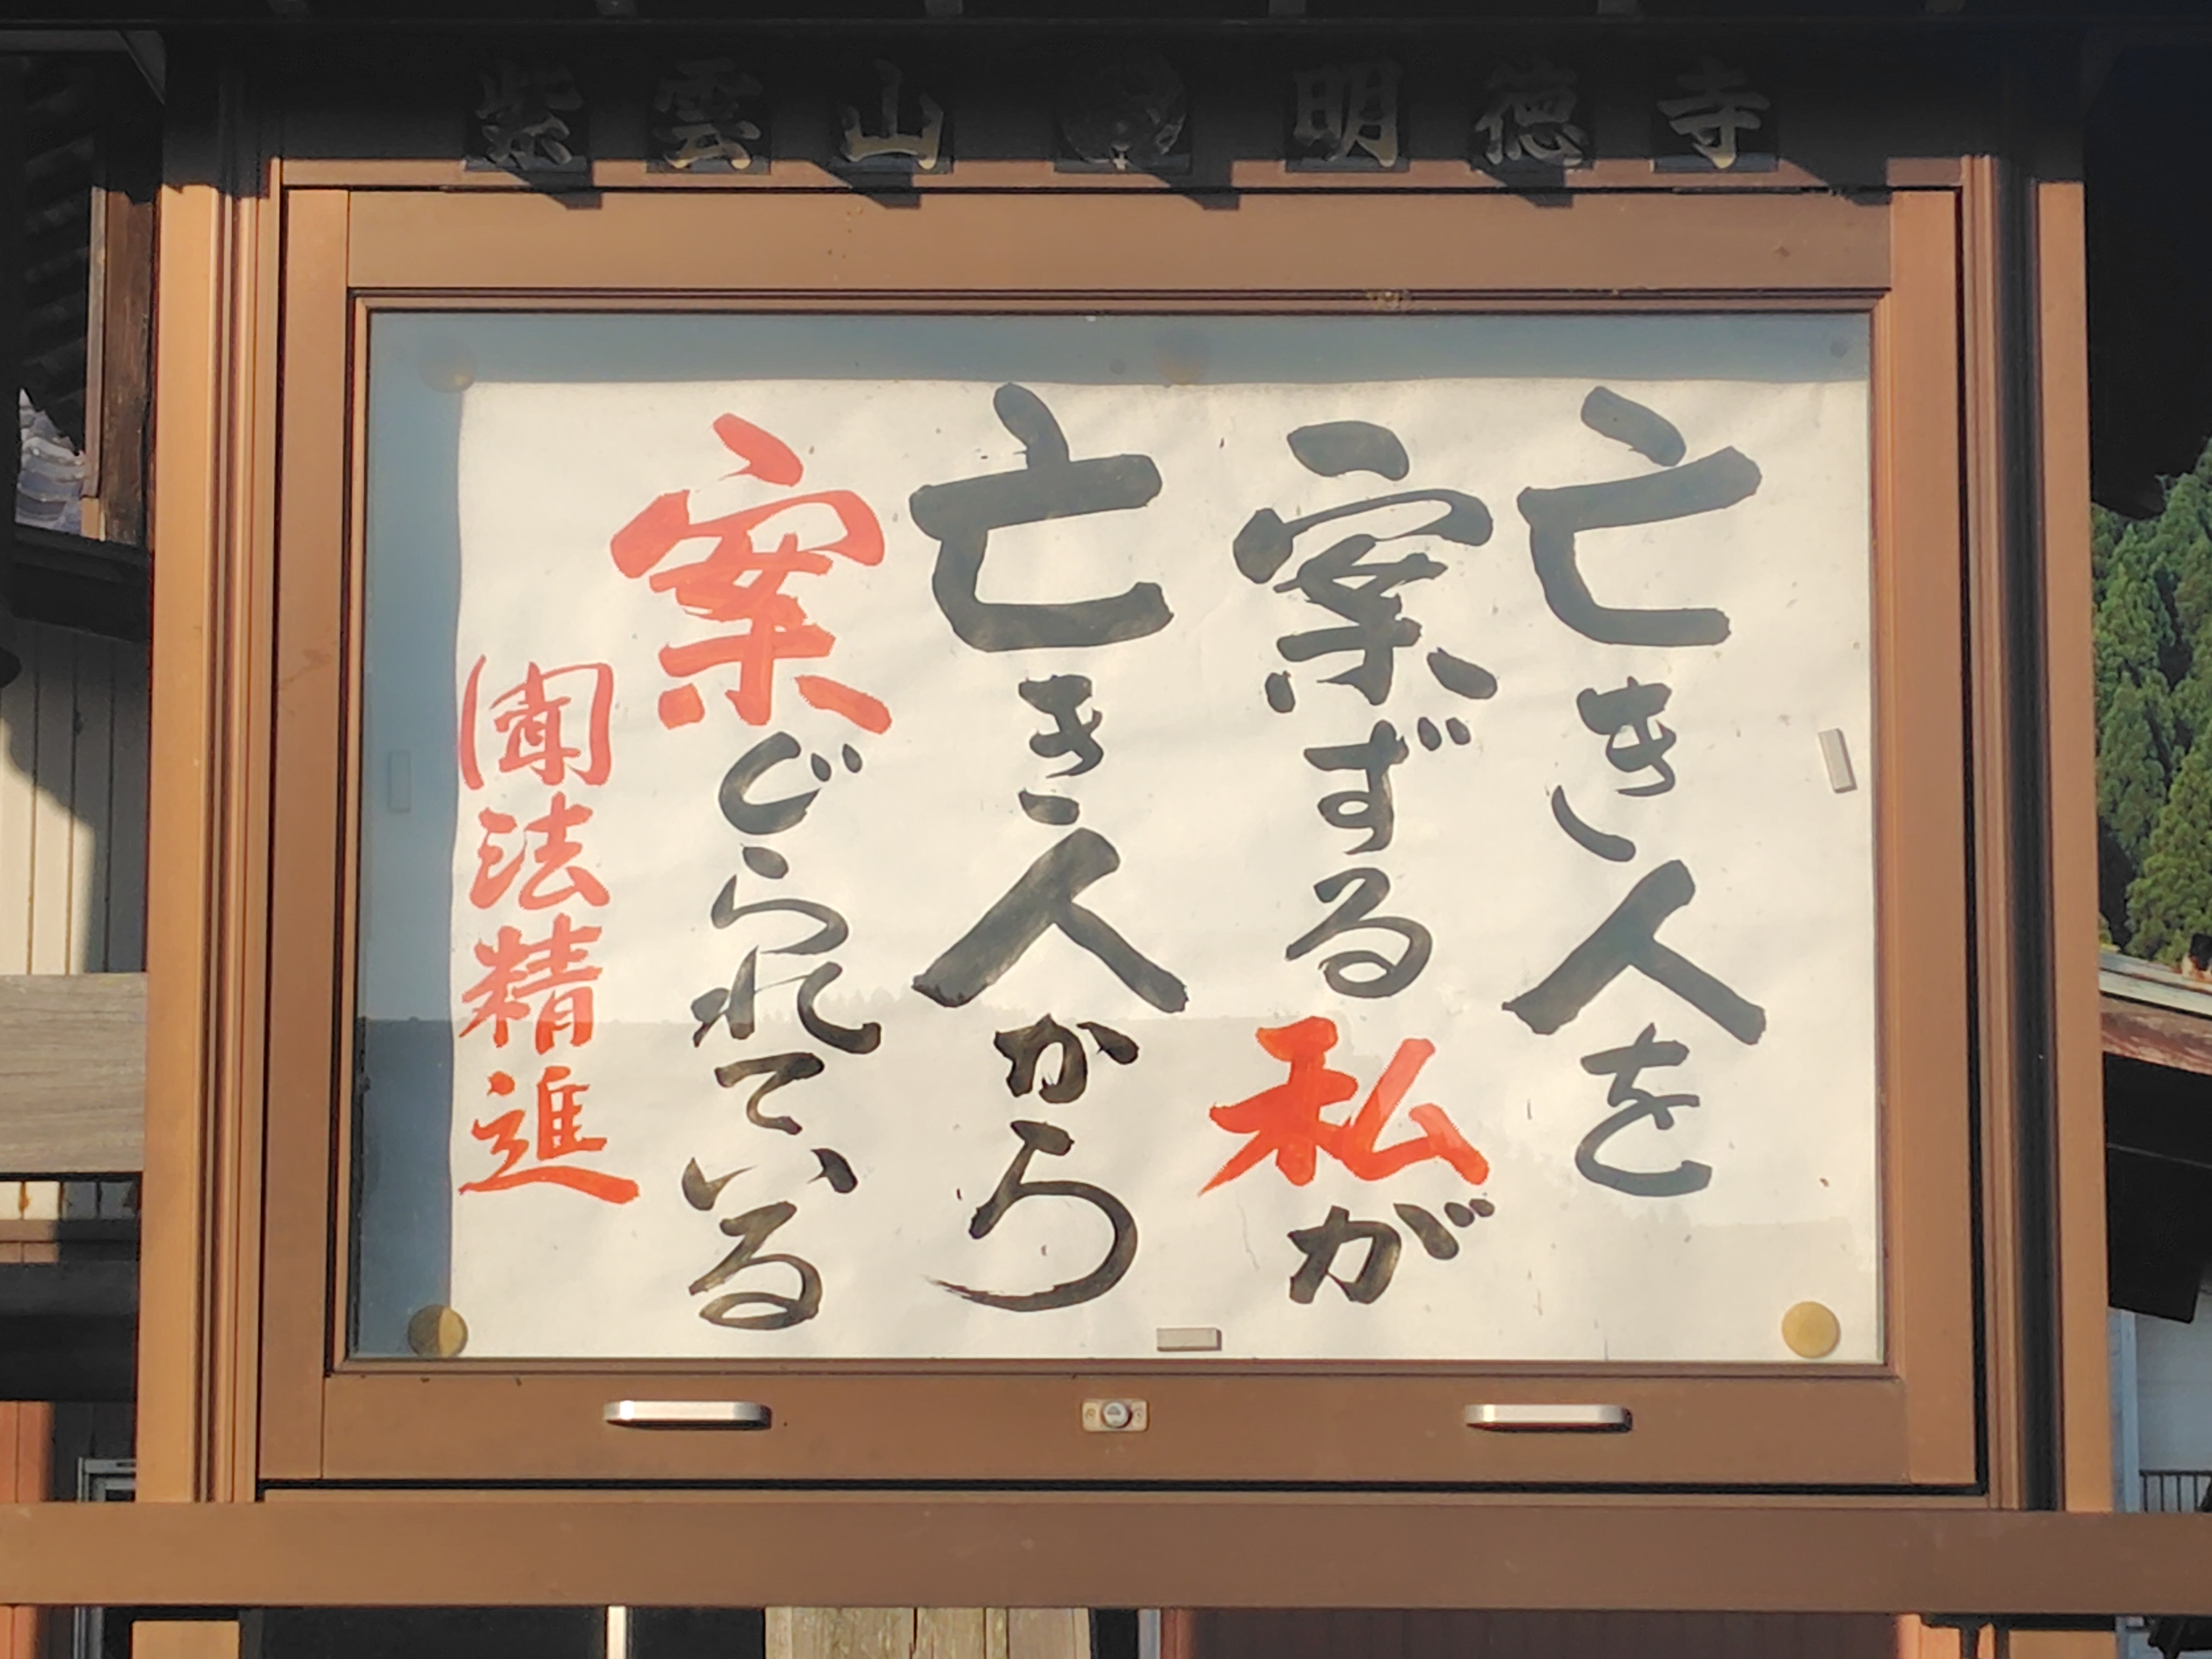 紫雲山 明徳寺
亡き人を
案ずる私が
亡き人から
案じられている
聞法精進